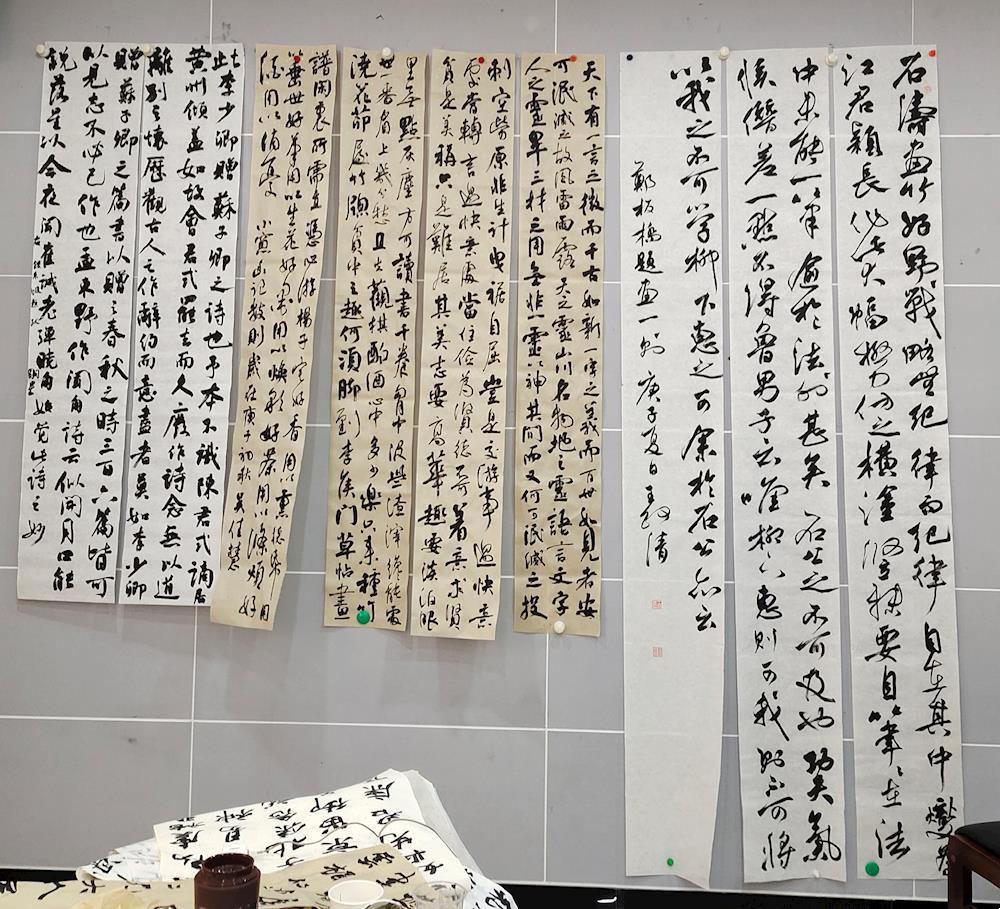 石濤畫竹好野戰略無紀律而紀律自在其中燮為
江君穎長作此大幅極力仿之橫塗豎抹要自筆筆在法
中未能一筆逾於法外甚矣石公之不可及也功夫氣
候僭差一點不得魯男子云唯柳下惠則可我則不可將
以我之不可學柳下惠之可余於石公亦云
鄭板橋題畫一則 庚子夏日王清
天下有一言之微而千古如新一字之義而百世如見者安
可泯滅之故風雷雨露天之靈山川名物地之靈語言文字
人之靈畢三才之用無非一靈以神其間而又何可泯滅之投
刺空勞原非生計曳裾自屈豈是交游事遇快意
處當轉言遇快意處當住儉為賢德不可著意求賢
貧是美稱只是難居其美志要高華趣要淡泊眼
里無點灰塵方可讀書千卷胸中沒些渣滓纔能處
世一番眉上幾分愁且去觀棋酌酒心中多少樂只來種竹
澆花茆屋竹牕貧中之趣何須腳到李侯門草帖畫
譜閑裏所需直憑心游揚子宅好香用以熏德好紙用
以垂世好筆用以生花好墨用以煥彩好茶用以滌煩好
酒用以消憂 小窗幽記數則歲在庚子初秋吳佳慧
此李少卿贈蘇子卿之詩也予本不識陳君式謫居
黃州傾蓋如故會君式罷去而久廢作詩念無以道
離別之懷歷觀古人之作辭約而意盡者莫如李少卿
贈蘇子卿之篇書以贈之春秋之時三百六篇皆可
以見志不必己作也孟東野作聞角詩云似開月口能
說落星心今夜聞崔誠老彈曉角始覺此詩之妙